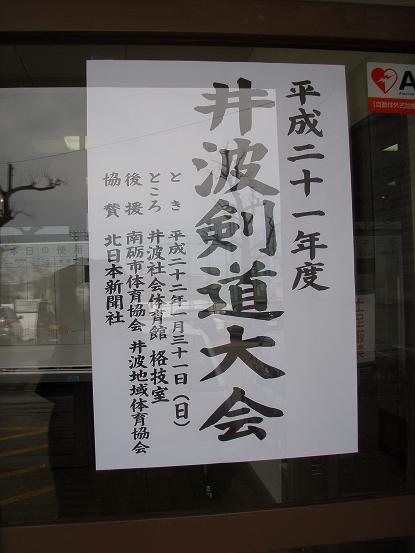 平成二十一年度
井波剣道大会
とき 平成二十二年一月三十一日（日）
ところ 井波社会体育館 格技室
後援 南砺市体育協会 井波地域体育協会
協賛 北日本新聞社
A
本日の便